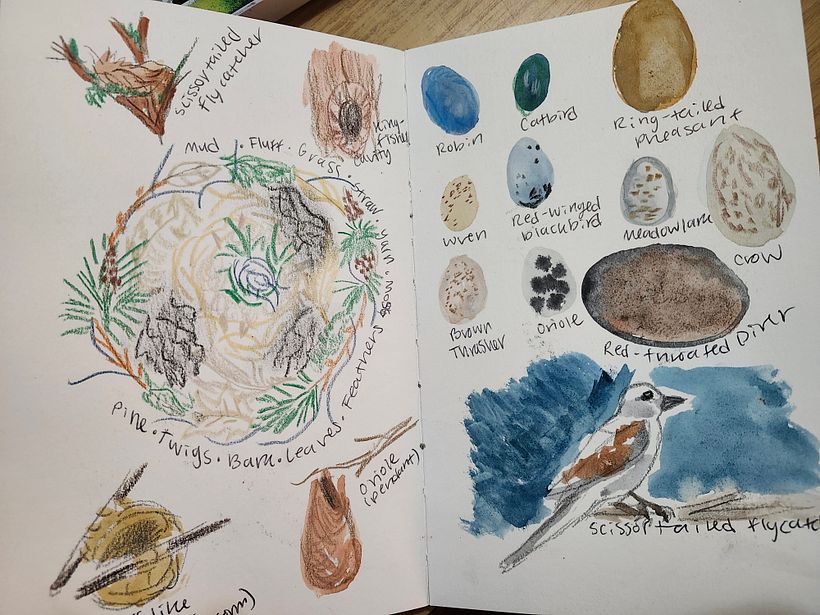 scissortailed
flycatcher
King-
fisher
cavity
Mud • Fluff • Grass • Straw • Yarn • Moss •
Pine • Twigs • Bark • Leaves • Feathers
Oriole
(pendant)
like
Robin
Catbird
Ring-tailed
pheasant
wren
Red-winged
blackbird
Meadowlark
Crow
Brown
Thrasher
Oriole
Red-throated Diver
scissortailed flycatc